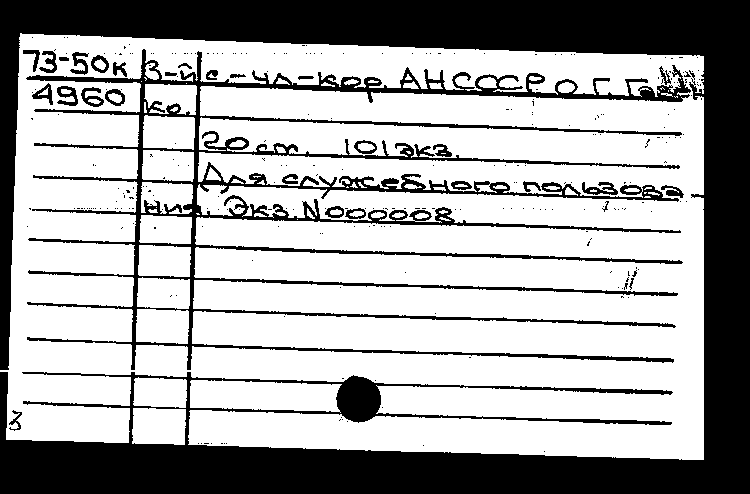 73-50к 3-й с.-чл-кор. АНСССР О. Г. Газен
4960 ко.
20 ст. 101 экз.
Для служебного пользова-
ния. Экз. N000008.
3